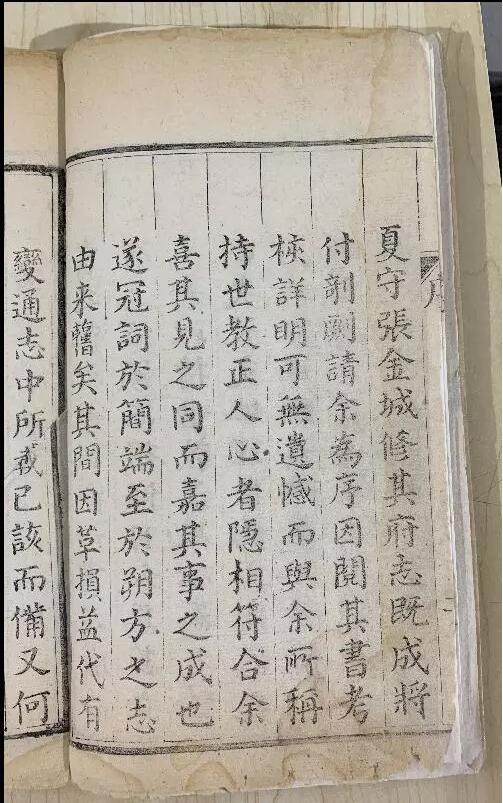 序
夏守張金城修其府志既成將
付剞劂請余為序因閱其書考
核詳明可無遺憾而與余所稱
持世教正人心者隱相符合余
喜其見之同而嘉其事之成也
遂冠詞於簡端至於朔方之志
由来舊矣其間因革損益代有
變通志中所載已該而備又何